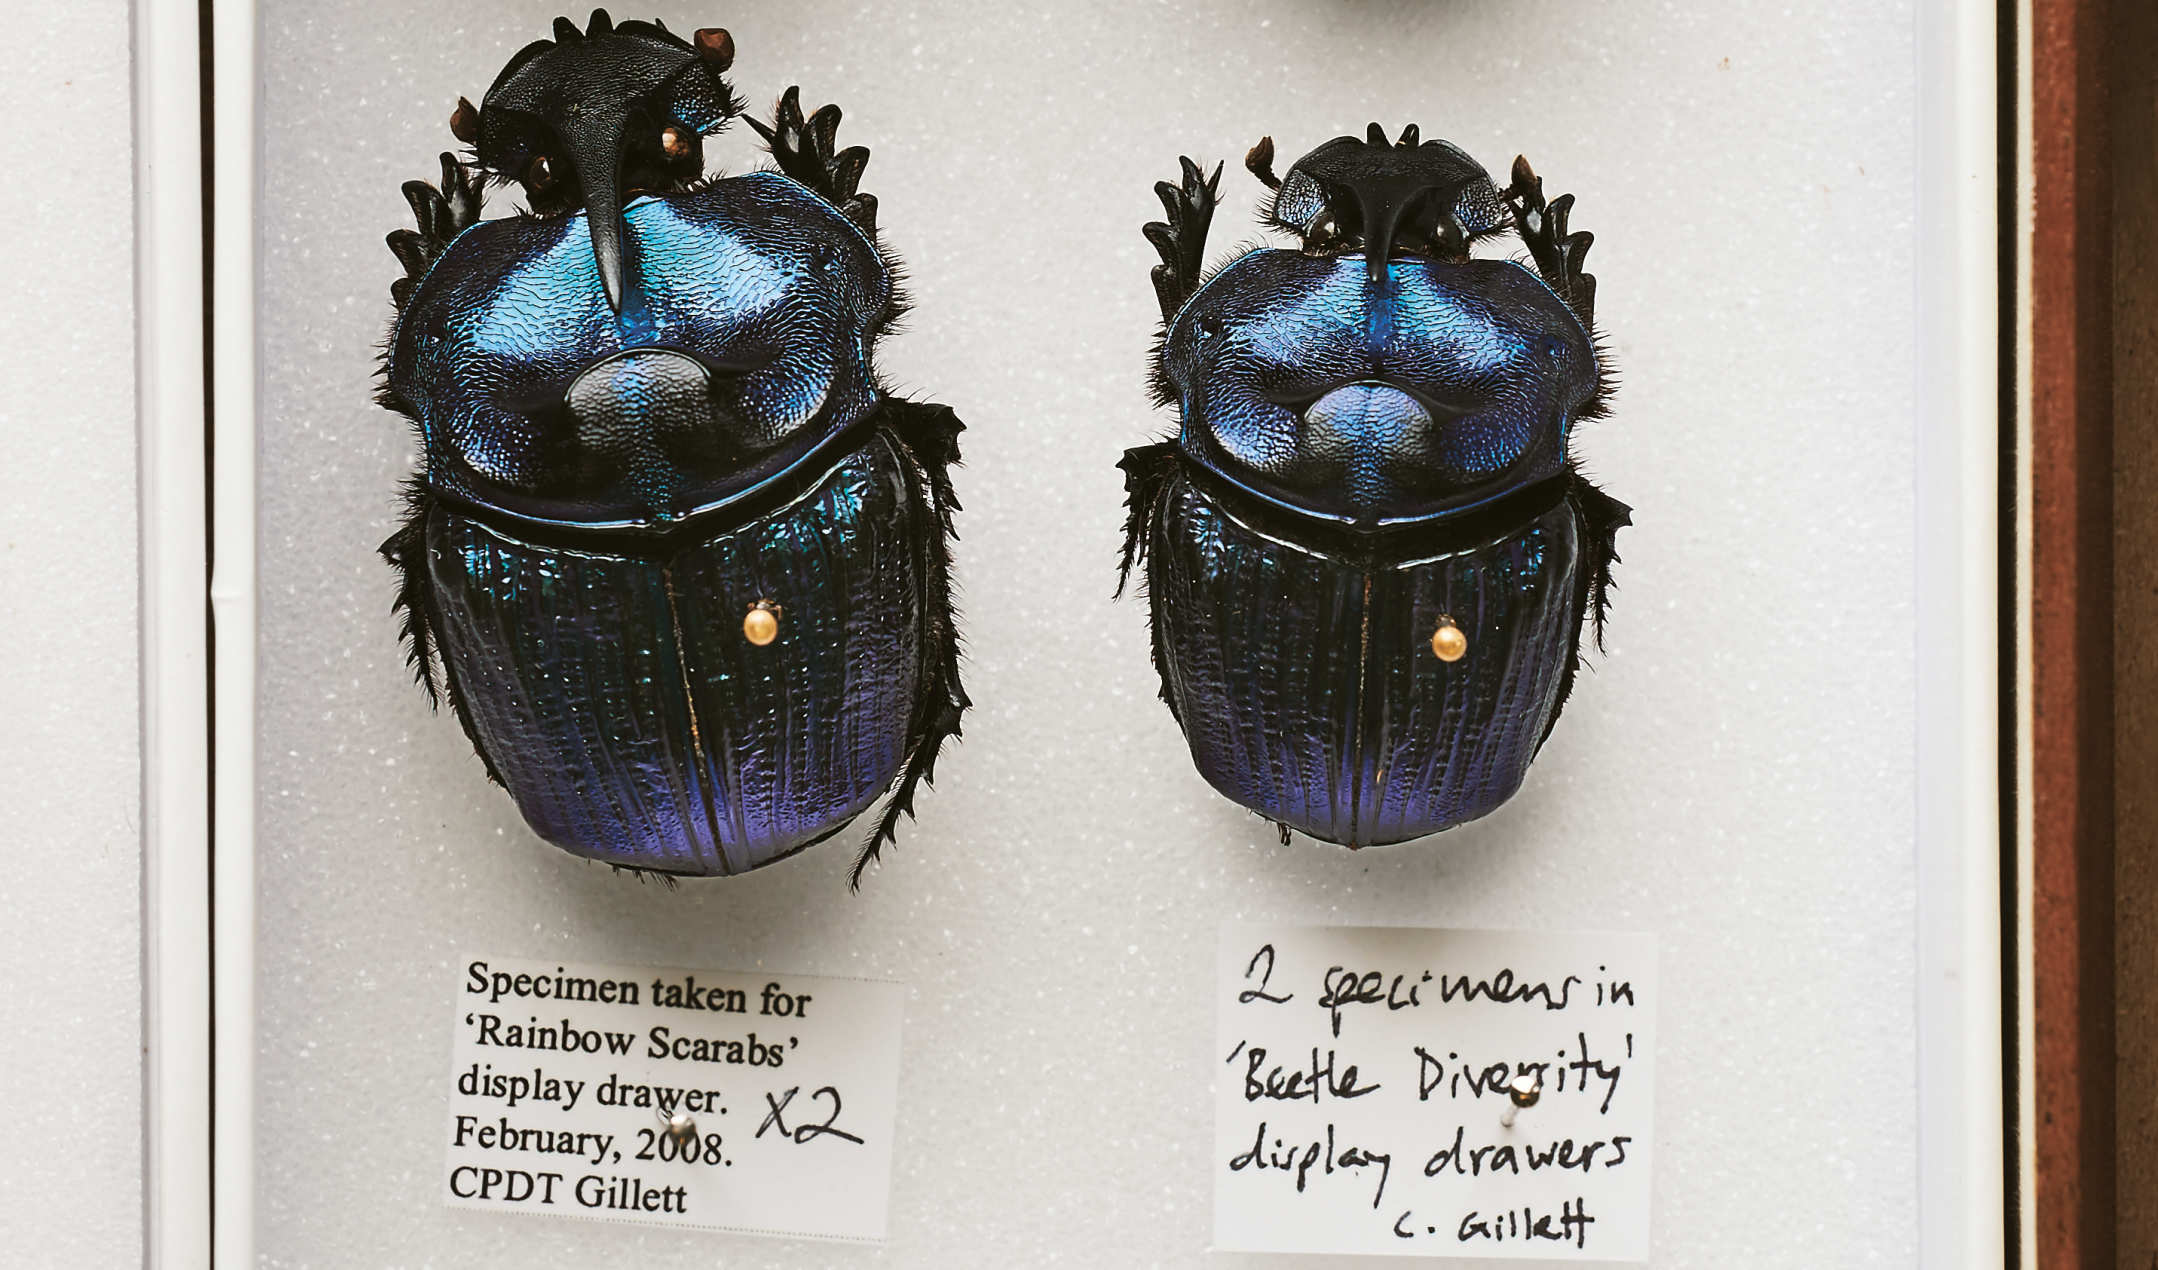 Specimen taken for
‘Rainbow Scarabs’
display drawer. X2
February, 2008.
CPDT Gillett
2 specimens in
'Beetle Diversity'
display drawers
C. Gillett